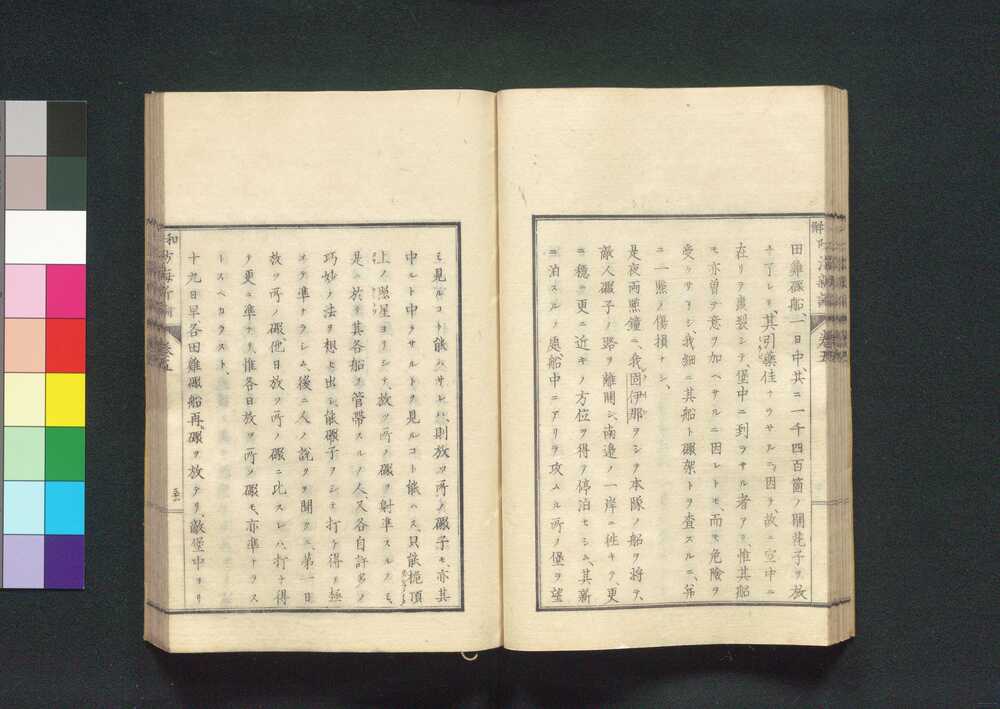 田雞礮船、一日中、其ニ一千四百箇ノ開花子ヲ放
チ了レリ、其引藥佳ナラサルニ因テ、故ニ空中ニ
在リテ轟裂シテ、堡中ニ到ラサル者アリ、惟其船
モ亦曽テ意ヲ加ヘサルニ因レトモ、而モ危險ヲ
受ケサリシ、我細ニ其船ト礮架トヲ査スルニ、
ニ一點ノ傷損ナシ、
是夜両點鐘ニ、我固伊那ヲシテ本隊ノ船ヲ將テ、
敵人礮子ノ路ヲ離開シ、南邉ノ一岸ニ徃キテ、更
ニ穏ニ更ニ近キノ方位ヲ得テ停泊セシム、其新
ニ泊スルノ處、船中ニアリテ攻ムル所ノ堡ヲ望
ミ見ルコト能ハサレハ、則放ツ所ノ礮子モ、亦其
中ルト中ラサルトヲ見ルコト能ハス、只能桅頂
上ノ照星ヨリシテ、放ツ所ノ礮ヲ射準スルノミ、
是ニ於テ其各船ヲ管帶スルノ人、又各自許多ノ
巧妙ノ法ヲ想ヒ出シ、能礮子ヲシテ打チ得テ極
メテ準ナラシム、後ニ人ノ説クヲ聞クニ、第一日
放ツ所ノ礮、他日放ツ所ノ礮ニ比スレハ、打チ得
テ更ニ準ナリ、惟各日放ツ所ノ礮モ、亦準ナラス
トスヘカラスト、
十九日早各田雞礮船再礮ヲ放テリ、敵堡中ヨリ
卷五